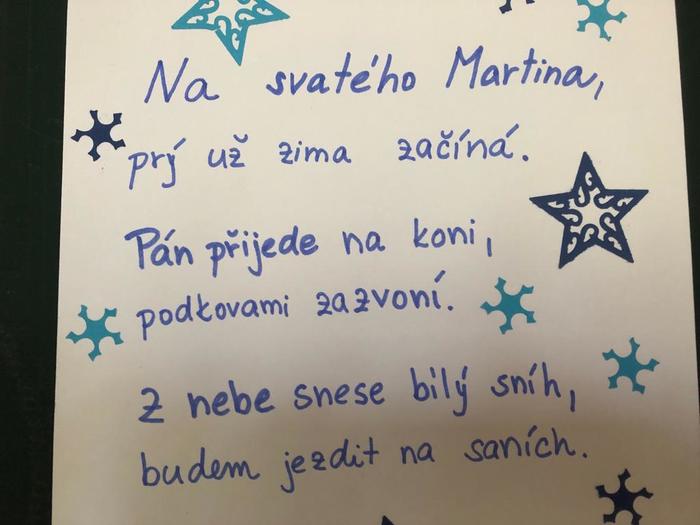 Na svatého Martina,
prý už zima začíná.
Pán přijede na koni,
podkovami zazvoní.
Z nebe snese bílý sníh,
budem jezdit na saních.